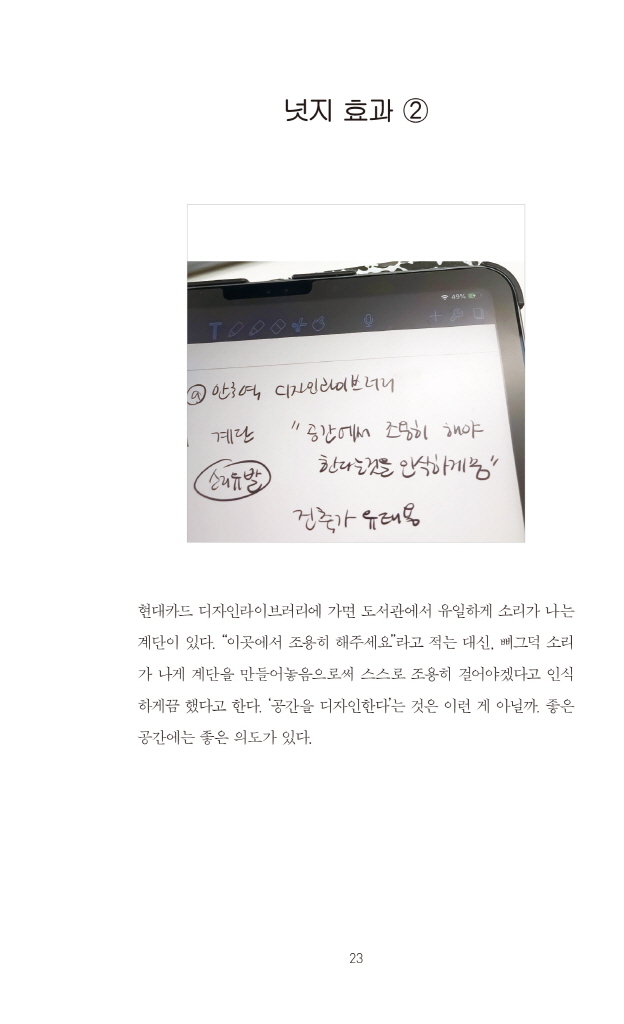 넛지 효과 ②
49%
@ 안국역, 디자인라이브러리
계단 "공간에서 조용히 해야
소리유발 한다는것을 인식하게끔"
건축가 유태용
현대카드 디자인라이브러리에 가면 도서관에서 유일하게 소리가 나는
계단이 있다. “이곳에서 조용히 해주세요”라고 적는 대신, 삐그덕 소리
가 나게 계단을 만들어놓음으로써 스스로 조용히 걸어야겠다고 인식
하게끔 했다고 한다. ‘공간을 디자인한다’는 것은 이런 게 아닐까. 좋은
공간에는 좋은 의도가 있다.
23